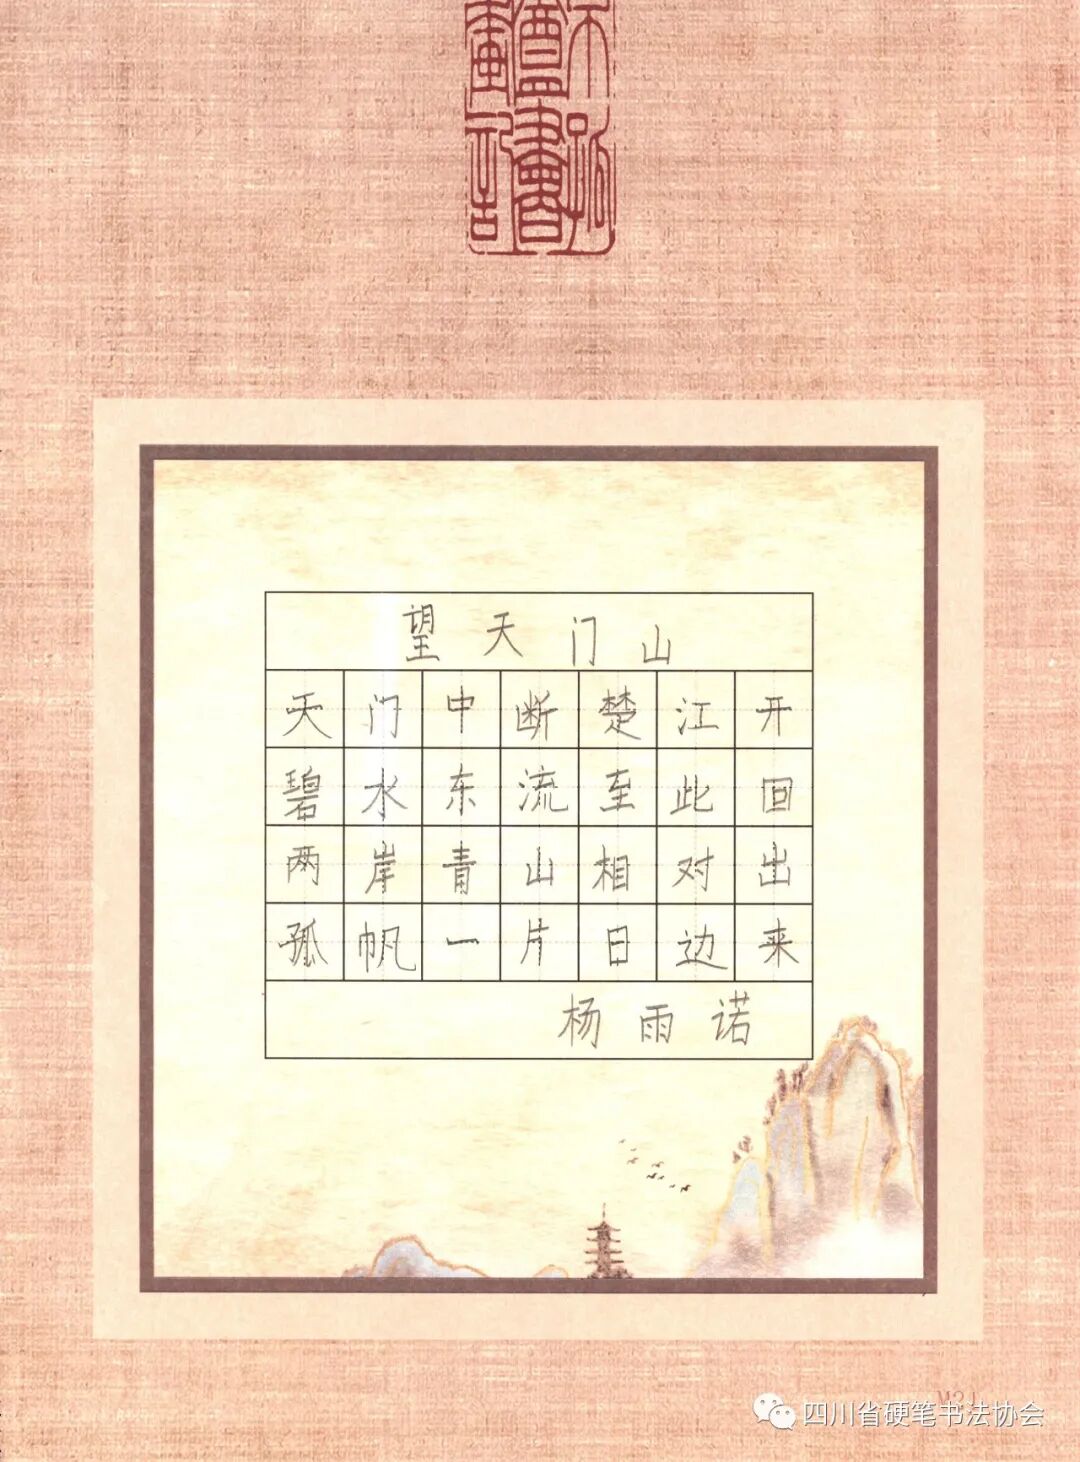 望天门山
天门中断楚江开
碧水东流至此回
两岸青山相对出
孤帆一片日边来
杨雨诺
M21
四川省硬笔书法协会